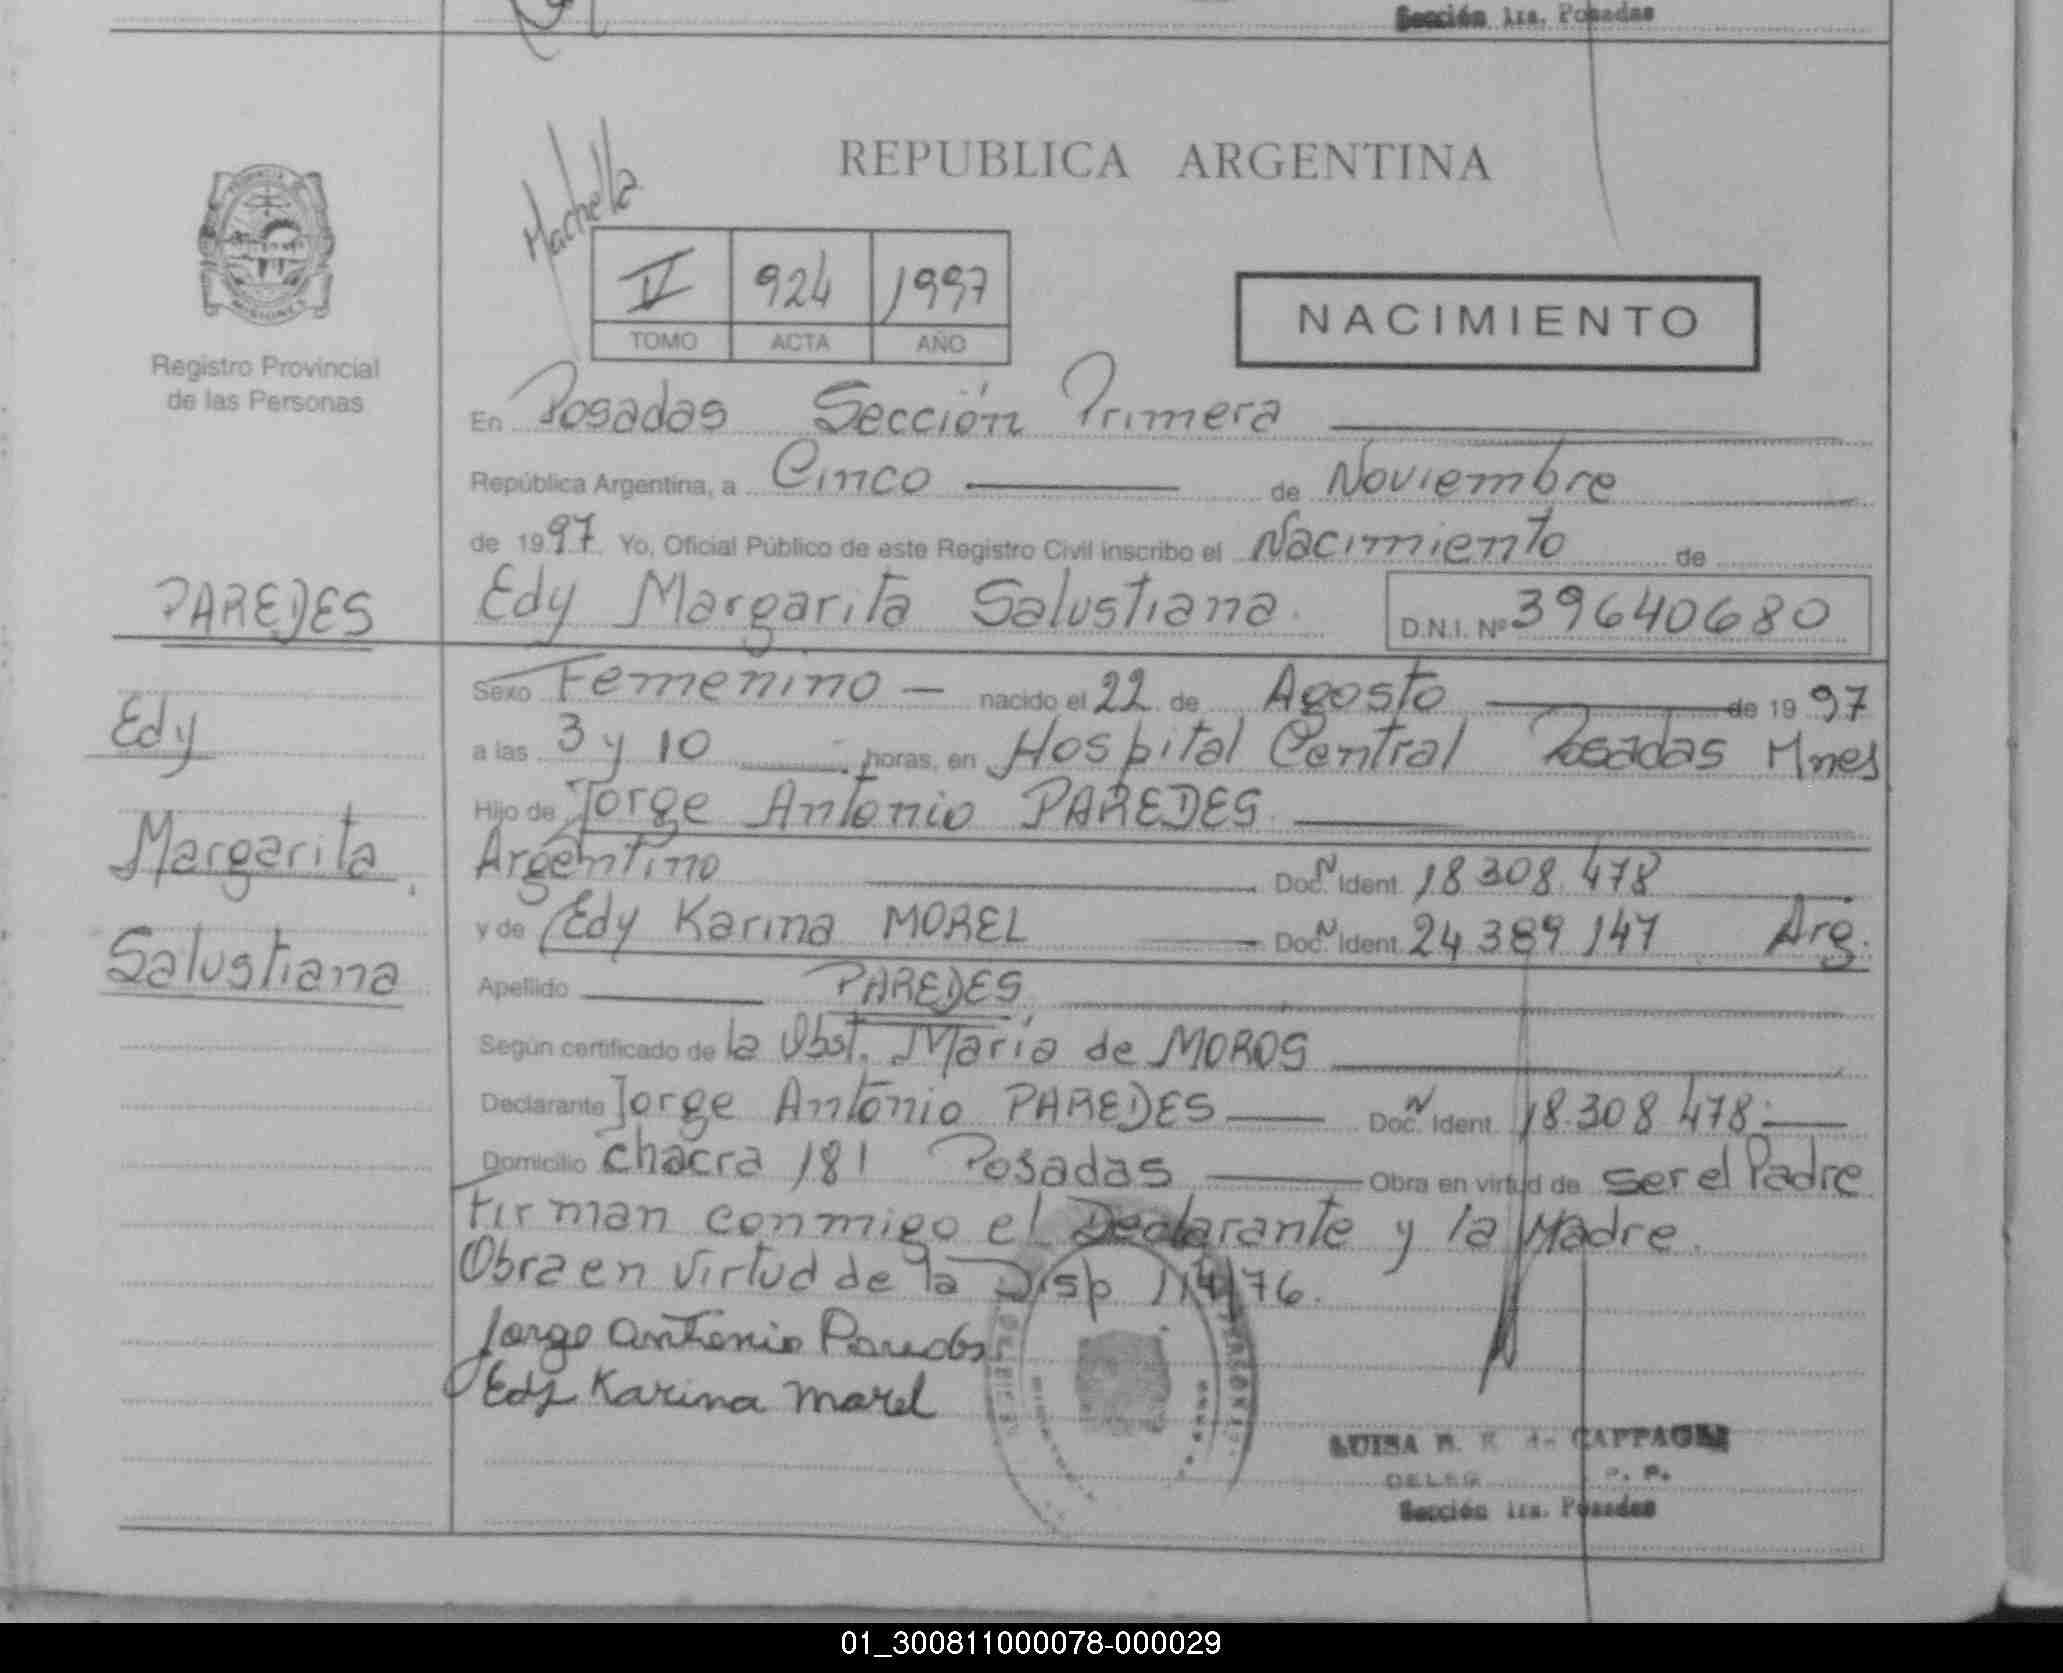 Sección 1ra. Posadas
REPUBLICA ARGENTINA
Machella
IV 924 1997
TOMO ACTA AÑO
NACIMIENTO
Registro Provincial
de las Personas
En Posadas Sección Primera
República Argentina, a Cinco de Noviembre
de 1997 Yo, Oficial Público de este Registro Civil inscribo el Nacimiento de
PAREDES Edy Margarita Salustiana. D.N.I. Nº 39640680
Sexo Femenino — nacido el 22 de Agosto de 1997
Edy
a las 3 y 10 horas, en Hospital Central Posadas Mnes
Hijo de Jorge Antonio PAREDES
Margarita
Argentino Doc. Ident. 18 308 478
y de Edy Karina MOREL Doc. Ident. 24 389 147 Arg.
Salustiana
Apellido PAREDES
Según certificado de la Obst. María de MOROS
Declarante Jorge Antonio PAREDES Doc. Ident. 18.308 478
Domicilio chacra 181 Posadas Obra en virtud de ser el Padre
Firman conmigo el Declarante y la Madre.
Obra en virtud de la Disp 114/76.
Jorge Antonio Paredes
Edy Karina Morel
LUISA de CAPPAGLI
Sección 1ra. Posadas
01_300811000078-000029